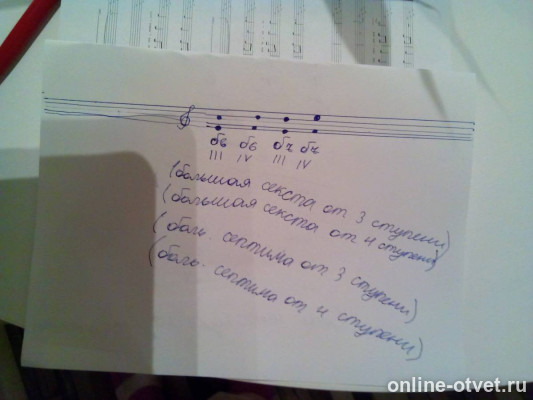 б6 б6 б7 б7
III IV III IV
(большая секста от 3 ступени)
(большая секста от 4 ступени)
(боль. септима от 3 ступени)
(боль. септима от 4 ступени)
online-otvet.ru